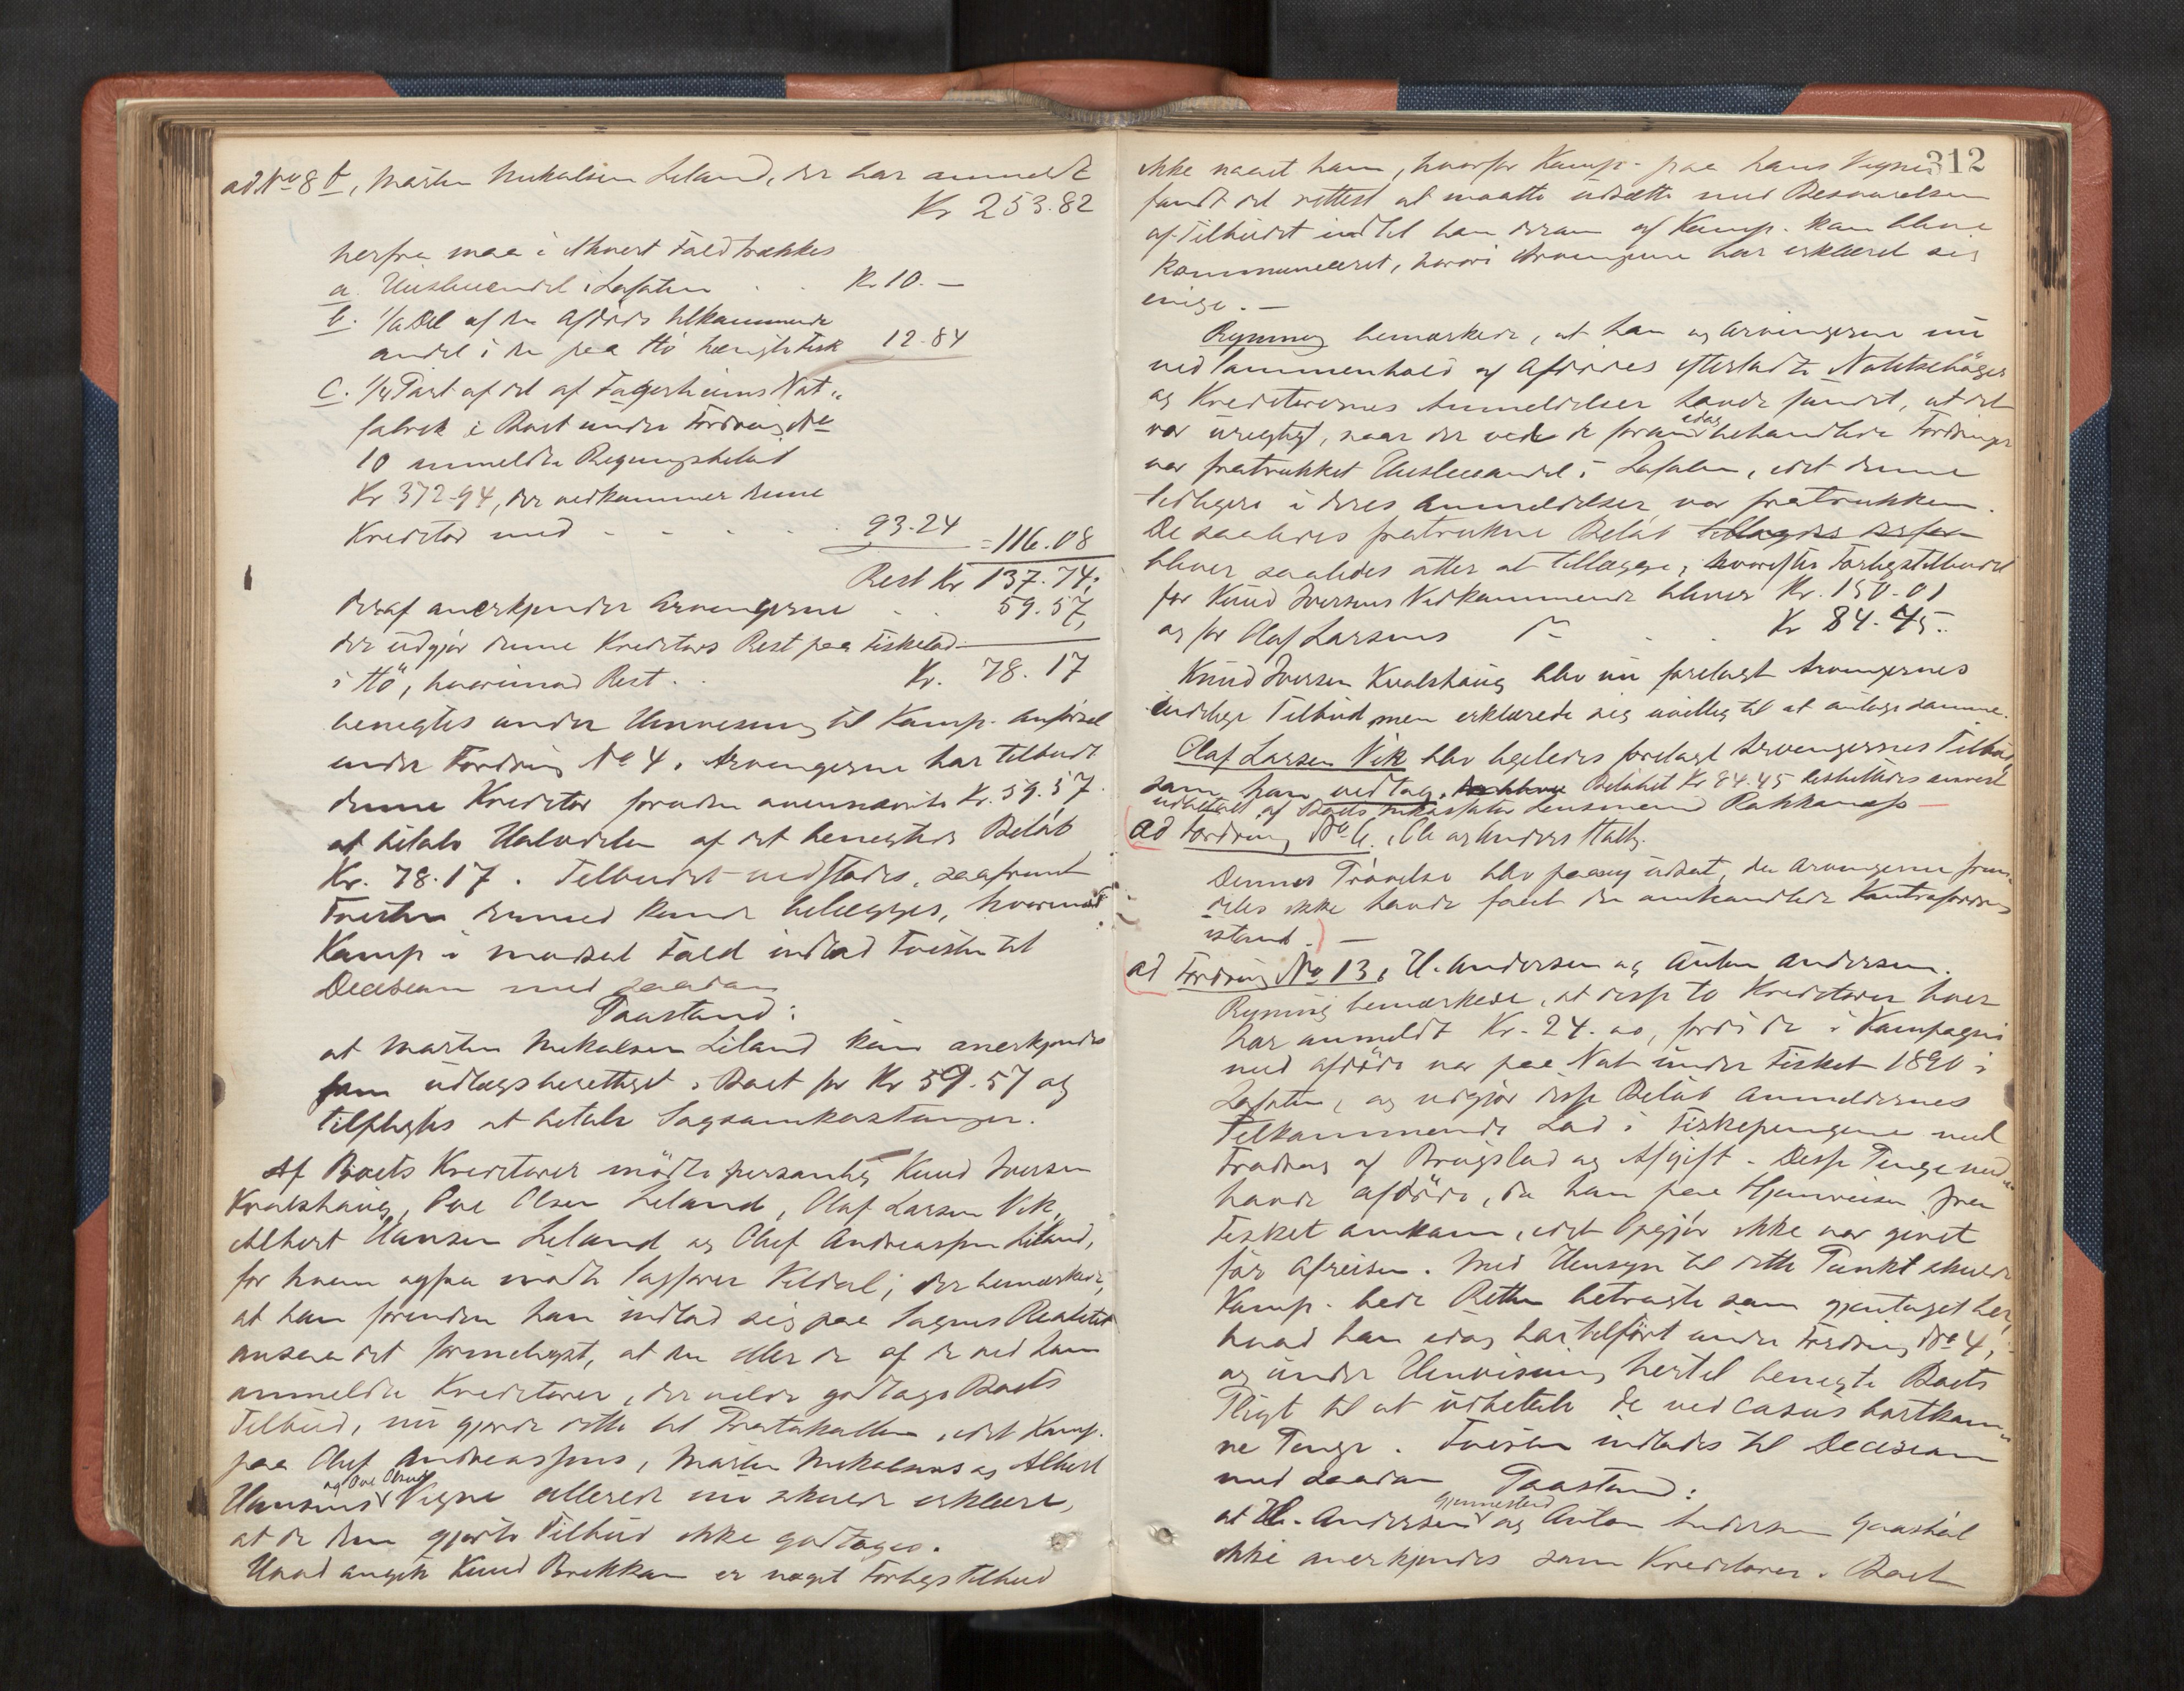 ad No 8 b, Mårten Mikalsen Leland, der har anmeldt
Kr 253.82
herfra maa i ethvert Fald trækkes
a. Huusleieandel i Lofoten . . Kr 10. —
b. 1/6 Del af den Afdøde tilkommende
andel i den paa Hö hængte Fisk 12.84
c. 1/4 Part af det af Fagerheims Not-
fabrik i Boet under Fordring No
10 anmeldte Regningsbeløb
Kr 372.94, der vedkommer denne
Kreditor med - - - - 93.24
= 116.08
Rest Kr 137.74;
deraf anerkjender Arvingerne . . 59.57,
der udgjør denne Kreditors Rest paa Fiskelod
i Hö, hvorimod Rest . . Kr. 78.17
benegtes under Henvisning til Kamp. Anførsel
under Fordring No 4. Arvingerne har tilbudt
denne Kreditor foruden ovennævnte Kr. 59.57
at betale Halvdelen af det benegtede Beløb
Kr. 78.17. Tilbudet vedstodes, saafremt
Tvisten dermed kunde bilægges, hvorimod
Kamp i modsat Fald indlod Tvisten til
Decision med saadan
Paastand:
at Mårten Mikalsen Leland kun anerkjendes
som udlægsberettiget i Boet for Kr 59.57 og
tilpligtes at betale Sagsomkostninger.
Af Boets Kreditorer mödte personlig Knud Iversen
Kvalshaug, Ove Olsen Leland, Olaf Larsen Vik,
Albert Hansen Leland og Oluf Andreassen Leland,
for hvem ogsaa mødte Sagfører Vildal; der bemærkede,
at han forinden han indlod sig paa Sagens Realitet
ansaa det formeligst, at den eller de af de ved ham
anmeldte Kreditorer, der vilde godtage Boets
Tilbud, nu gjorde dette til Protokollen, idet Kamp.
paa Oluf Andreassens, Mårten Mikalsens og Albert
og Ove Olsens
Hansens Vegne allerede nu skulde erklære,
at de dem gjorte Tilbud ikke godtages.
Hvad angik Knud Brekkan er noget Forligstilbud
312
ikke naaet ham, hvorfor Kamp. paa hans Vegne
fandt det rettest at maatte udsætte med Besvarelsen
af Tilbudet indtil han derom af Kamp. kan blive
kommuniceret, hvori Arvingerne har erklæret sig
enige. —
Rynning bemærkede, at han og Arvingerne nu
ved Sammenhold af Afdødes efterladte Notitsbøger
og Kreditorernes Anmeldelser havde fundet, at det
idag
var urigtigt, naar der ved de foran behandlede Fordringer
var fratrukket Huusleieandel i Lofoten, idet denne
tidligere i deres Anmeldelser var fratrukken.
De saaledes fratrukne Beløb tillægges derfor
bliver saaledes atter at tillægge, hvorefter Forligstilbudet
for Knud Iversens Vedkommende bliver Kr. 150.01
og for Olaf Larsens . . Kr 84.45.
Knud Iversen Kvalshaug blev nu forelagt Arvingernes
endelige Tilbud, men erklærede sig uvillig til at antage samme.
Olaf Larsen Vik blev ligeledes forelagt Arvingernes Tilbud,
som han vedtog. Beløbet Kr 84.45 besluttedes
udbetalt af Boets Inkassator Lensmand
ad Fordring No 6, Ole og Anders Halty.
Dennes Prøvelse blev paany udsat, da Arvingerne frem-
deles ikke havde faaet den omhandlede Kontrafordring
istand. —
ad Fordring No 13, H. Andersen og Anton Andersen.
Rynning bemærkede, at disse to Kreditorer hver
har anmeldt Kr. 24.00, fordi de i Kompagni
med afdøde var paa Not under Fisket 1890 i
Lofoten, og udgjør disse Beløb Anmeldernes
tilkommende Lod i Fiskepengene med
Fradrag af Brugslod og Afgift. Disse Penge med-
havde afdøde, da han paa Hjemreisen fra
Fisket omkom, idet Opgjør ikke var givet
før Afreisen. Med Hensyn til dette Punkt skulde
Kamp. bede Retten betragte som gjentaget her,
hvad han idag har tilført under Fordring No 4,
og under Henvisning hertil benegte Boets
Pligt til at udbetale de ved casus bortkom-
ne Penge. Tvisten indlodes til Decision
med saadan Paastand:
at H. Andersen og Anton Andersen
ikke anerkjendes som Kreditorer i Boet